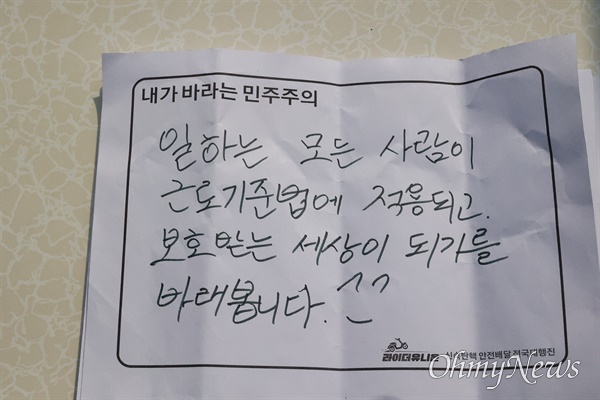 내가 바라는 민주주의
일하는 모든 사람이
근로기준법에 적용되고.
보호받는 세상이 되기를
바래봅니다. ^^
라이더유니온 안전배달 전국대행진
OhmyNews